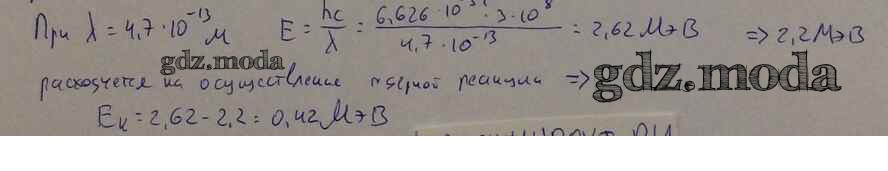 При λ = 4,7·10⁻¹³ м E = hc/λ = 6,626·10⁻³⁴·3·10⁸ / 4,7·10⁻¹³ = 2,62 МэВ => 2,2 МэВ
gdz.moda
расходуется на осуществление ядерной реакции =>
gdz.moda
Eк = 2,62 - 2,2 = 0,42 МэВ